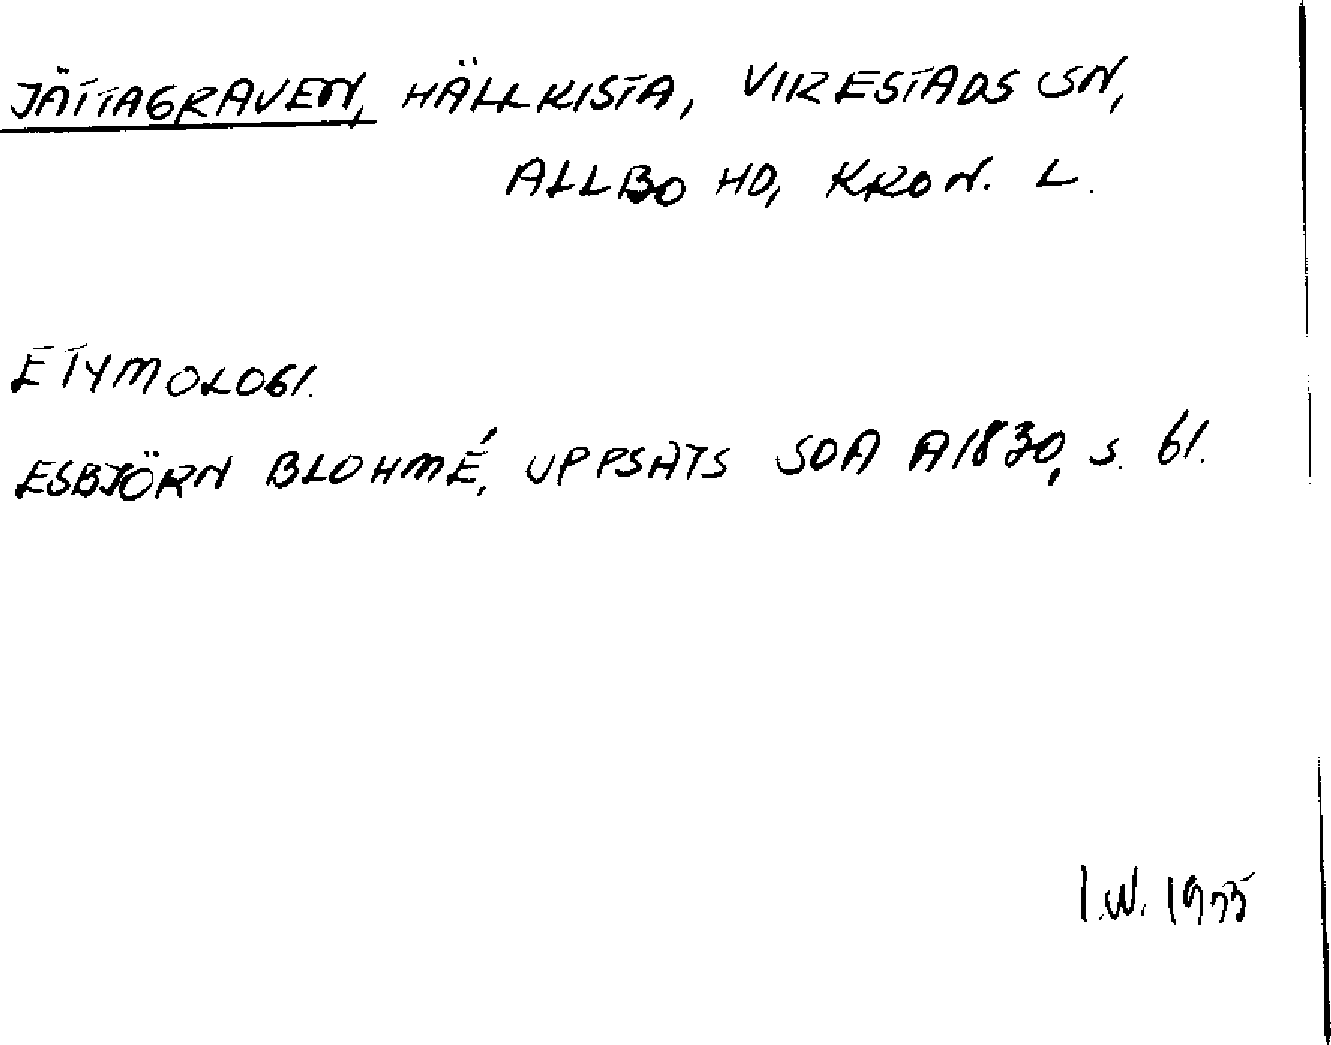 JÄTTAGRAVEN, HÄLLKISTA, VIRESTADS SN,
ALLBO HD, KRON. L.
ETYMOLOGI.
ESBJÖRN BLOHMÉ, UPPSATS SOA A1830, s. 61.
I.W. 1975